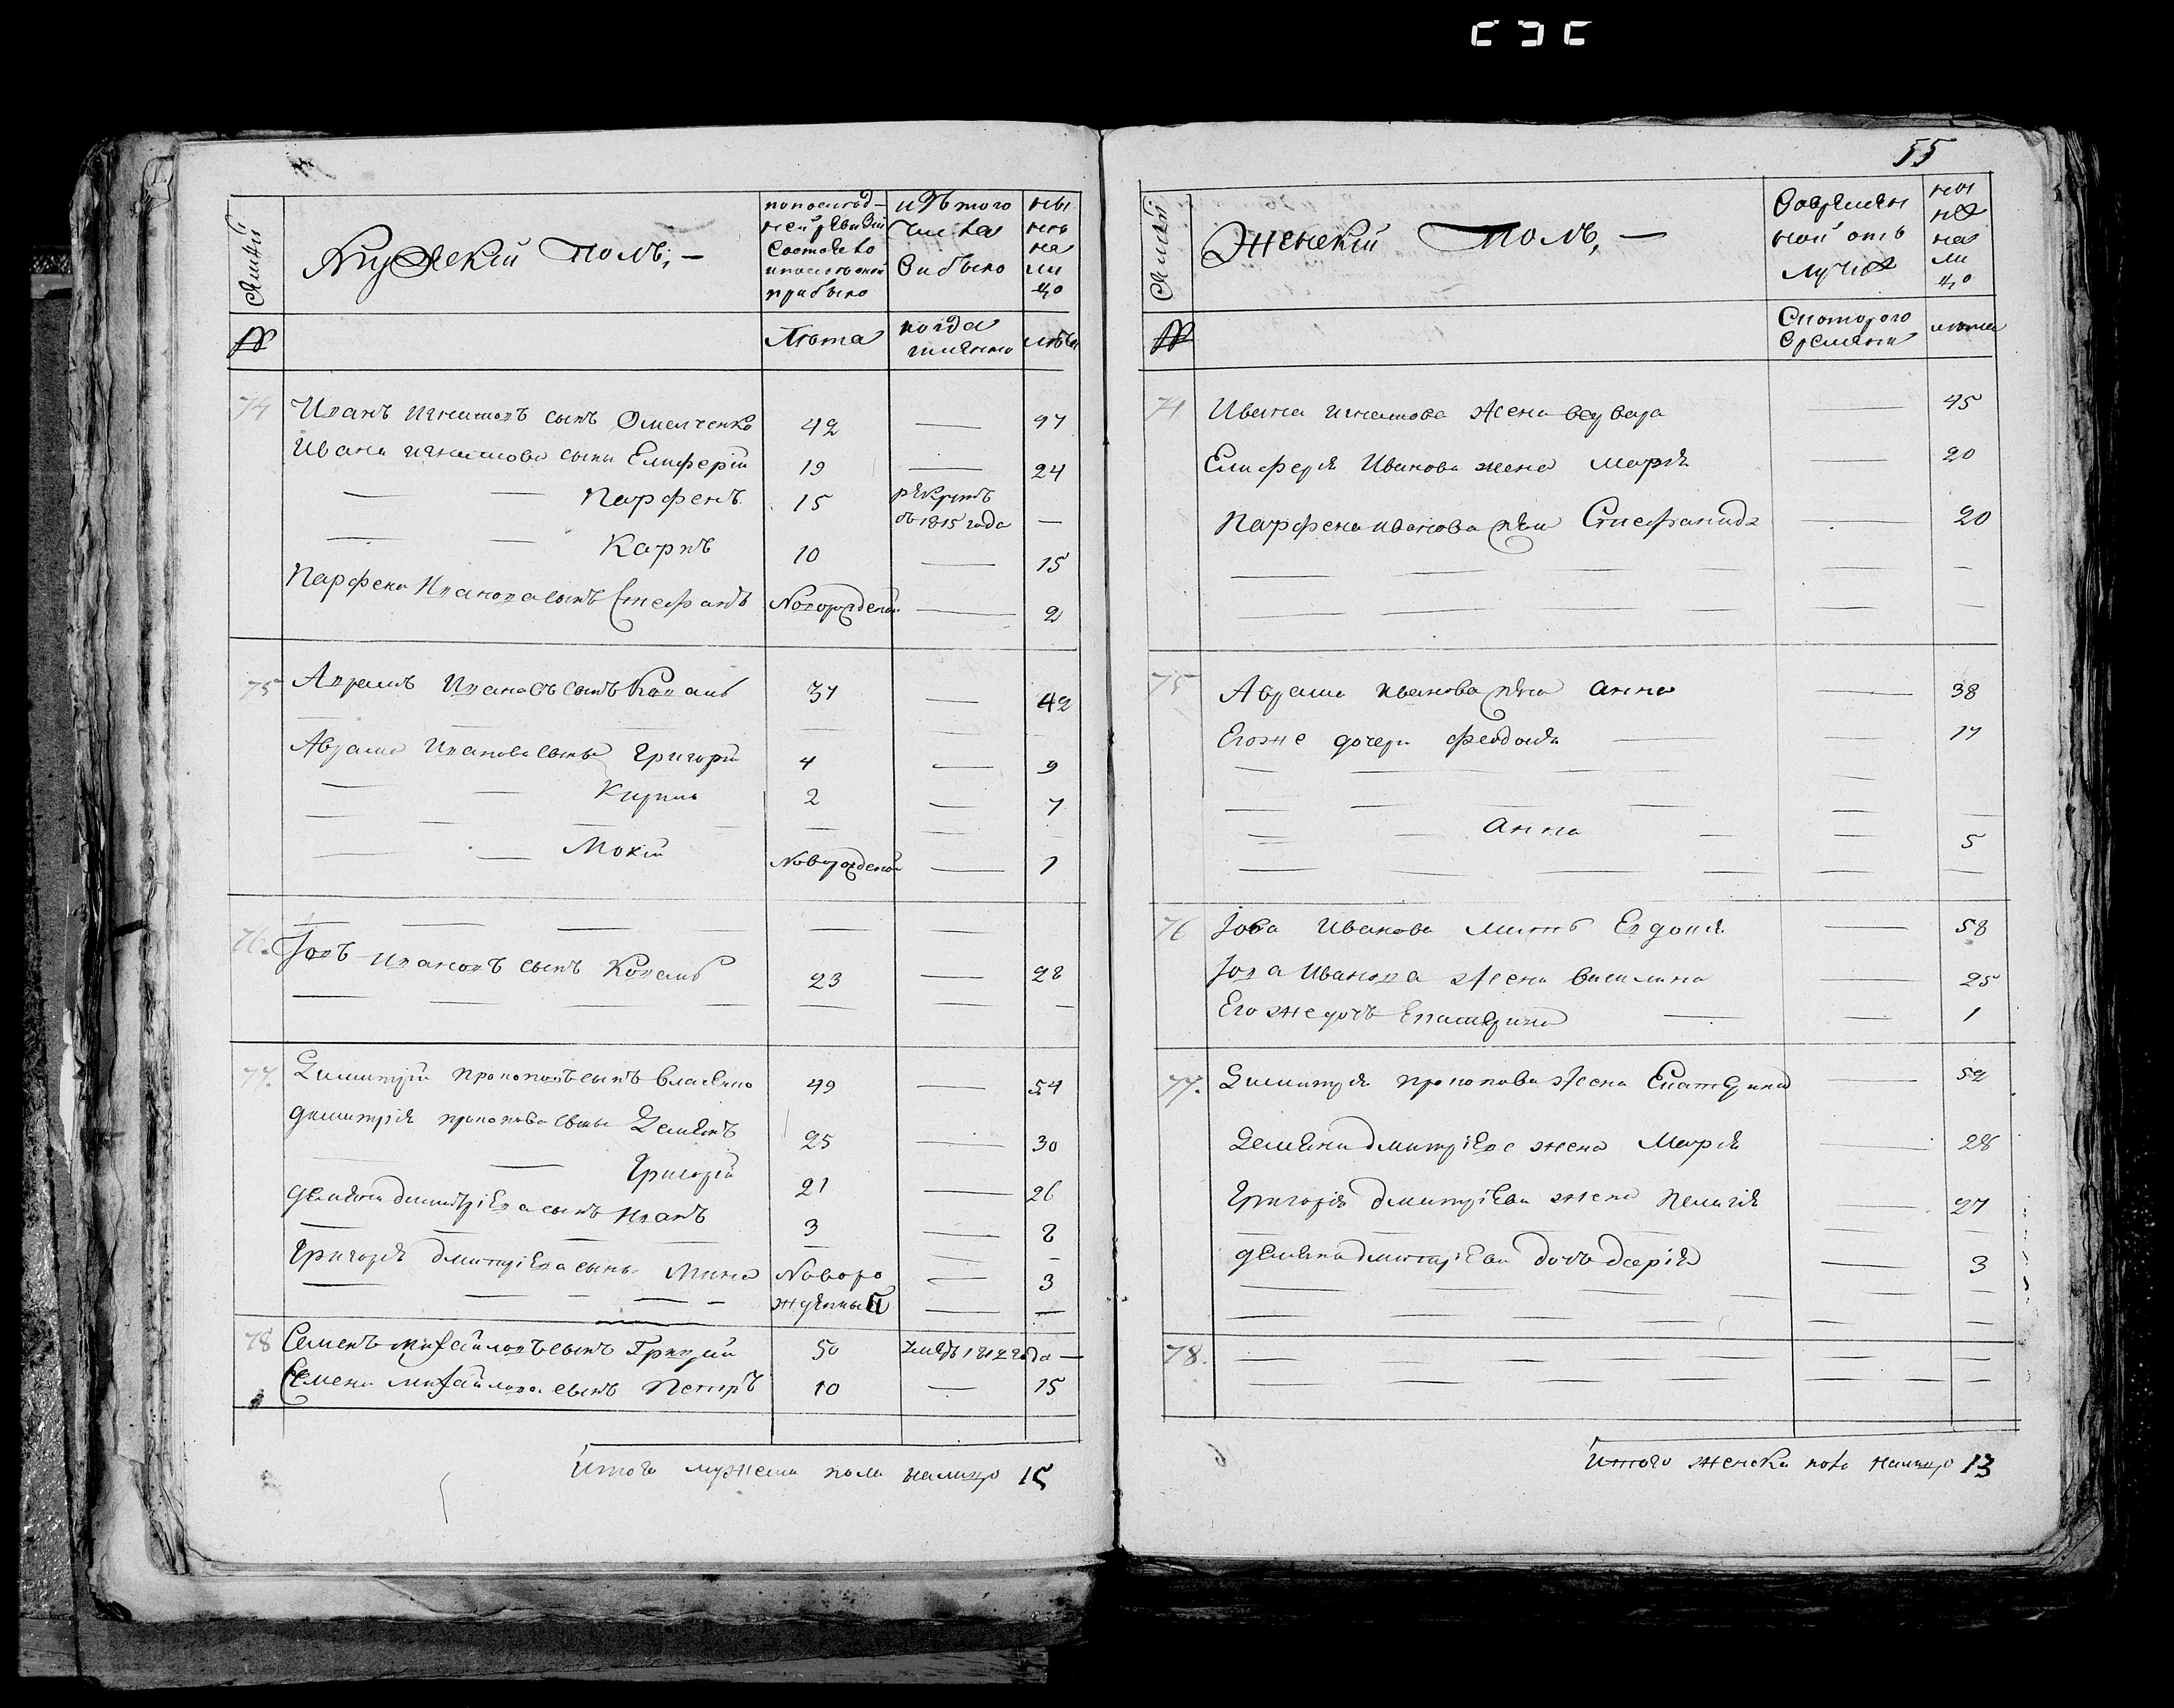 55
Мужескій полъ, —
по послед-
ней ревизіи
состояло
и после оной
прибыло
изъ того
числа
выбыло
ныне
на
ли
цо
семьи
№
Лѣта
когда
имянно
лѣта
74 Иванъ Игнатовъ сынъ Омелченко 42 — 47
Ивана Игнатова сыны Елиферій 19 — 24
— — Парфенъ 15 рекрутъ
въ 1815 года —
— — Карпъ 10 — 15
Парфена Иванова сынъ Стефанъ Новорожденой — 2
75 Аврамъ Ивановъ сынъ Коваль 37 — 42
Аврама Иванова сыны Григорій 4 — 9
— — Кирило 2 — 7
— — Мокій Новорожденой — 1
76. Іовъ Ивановъ сынъ Коваль 23 — 28
77. Димитрій Прокоповъ сынъ 49 — 54
Димитрія Прокопова сыны Демянъ 25 — 30
— Григорій 21 — 26
Демяна Димитріева сынъ Иванъ 3 — 8
Григорія Дмитріева сынъ Мина Новоро 3
жденный — —
78 Семенъ Михайловъ сынъ 50 1812 года —
Семена Михайлова сынъ Петръ 10 — 15
Итого мужеска пола налицо 15
Женскій полъ, —
во времен
ной от
лучке
ныне
на
ли
цо
семьи
№
С котораго
времени
лѣта
74 Ивана Игнатова жена — 45
Елиферія Иванова жена Марія — 20
Парфена Иванова жена Стефанида 20
75 Аврама Иванова жена Анна — 38
Егоже дочери Феодосія — — 17
— — Анна — — 5
76 Іова Иванова мать Евдокія — 58
Іова Иванова жена Василина — 25
Егоже дочь Екатерина — — 1
77. Димитрія Прокопова жена Екатерина — 52
Демяна Дмитріева жена Марія — 28
Григорія Дмитріева жена Пелагія — 27
Демяна Дмитріева дочь Дарія — 3
78.
Итого женска пола налицо 13